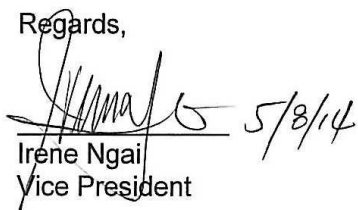 Regards,
5/8/14
Irene Ngai
Vice President